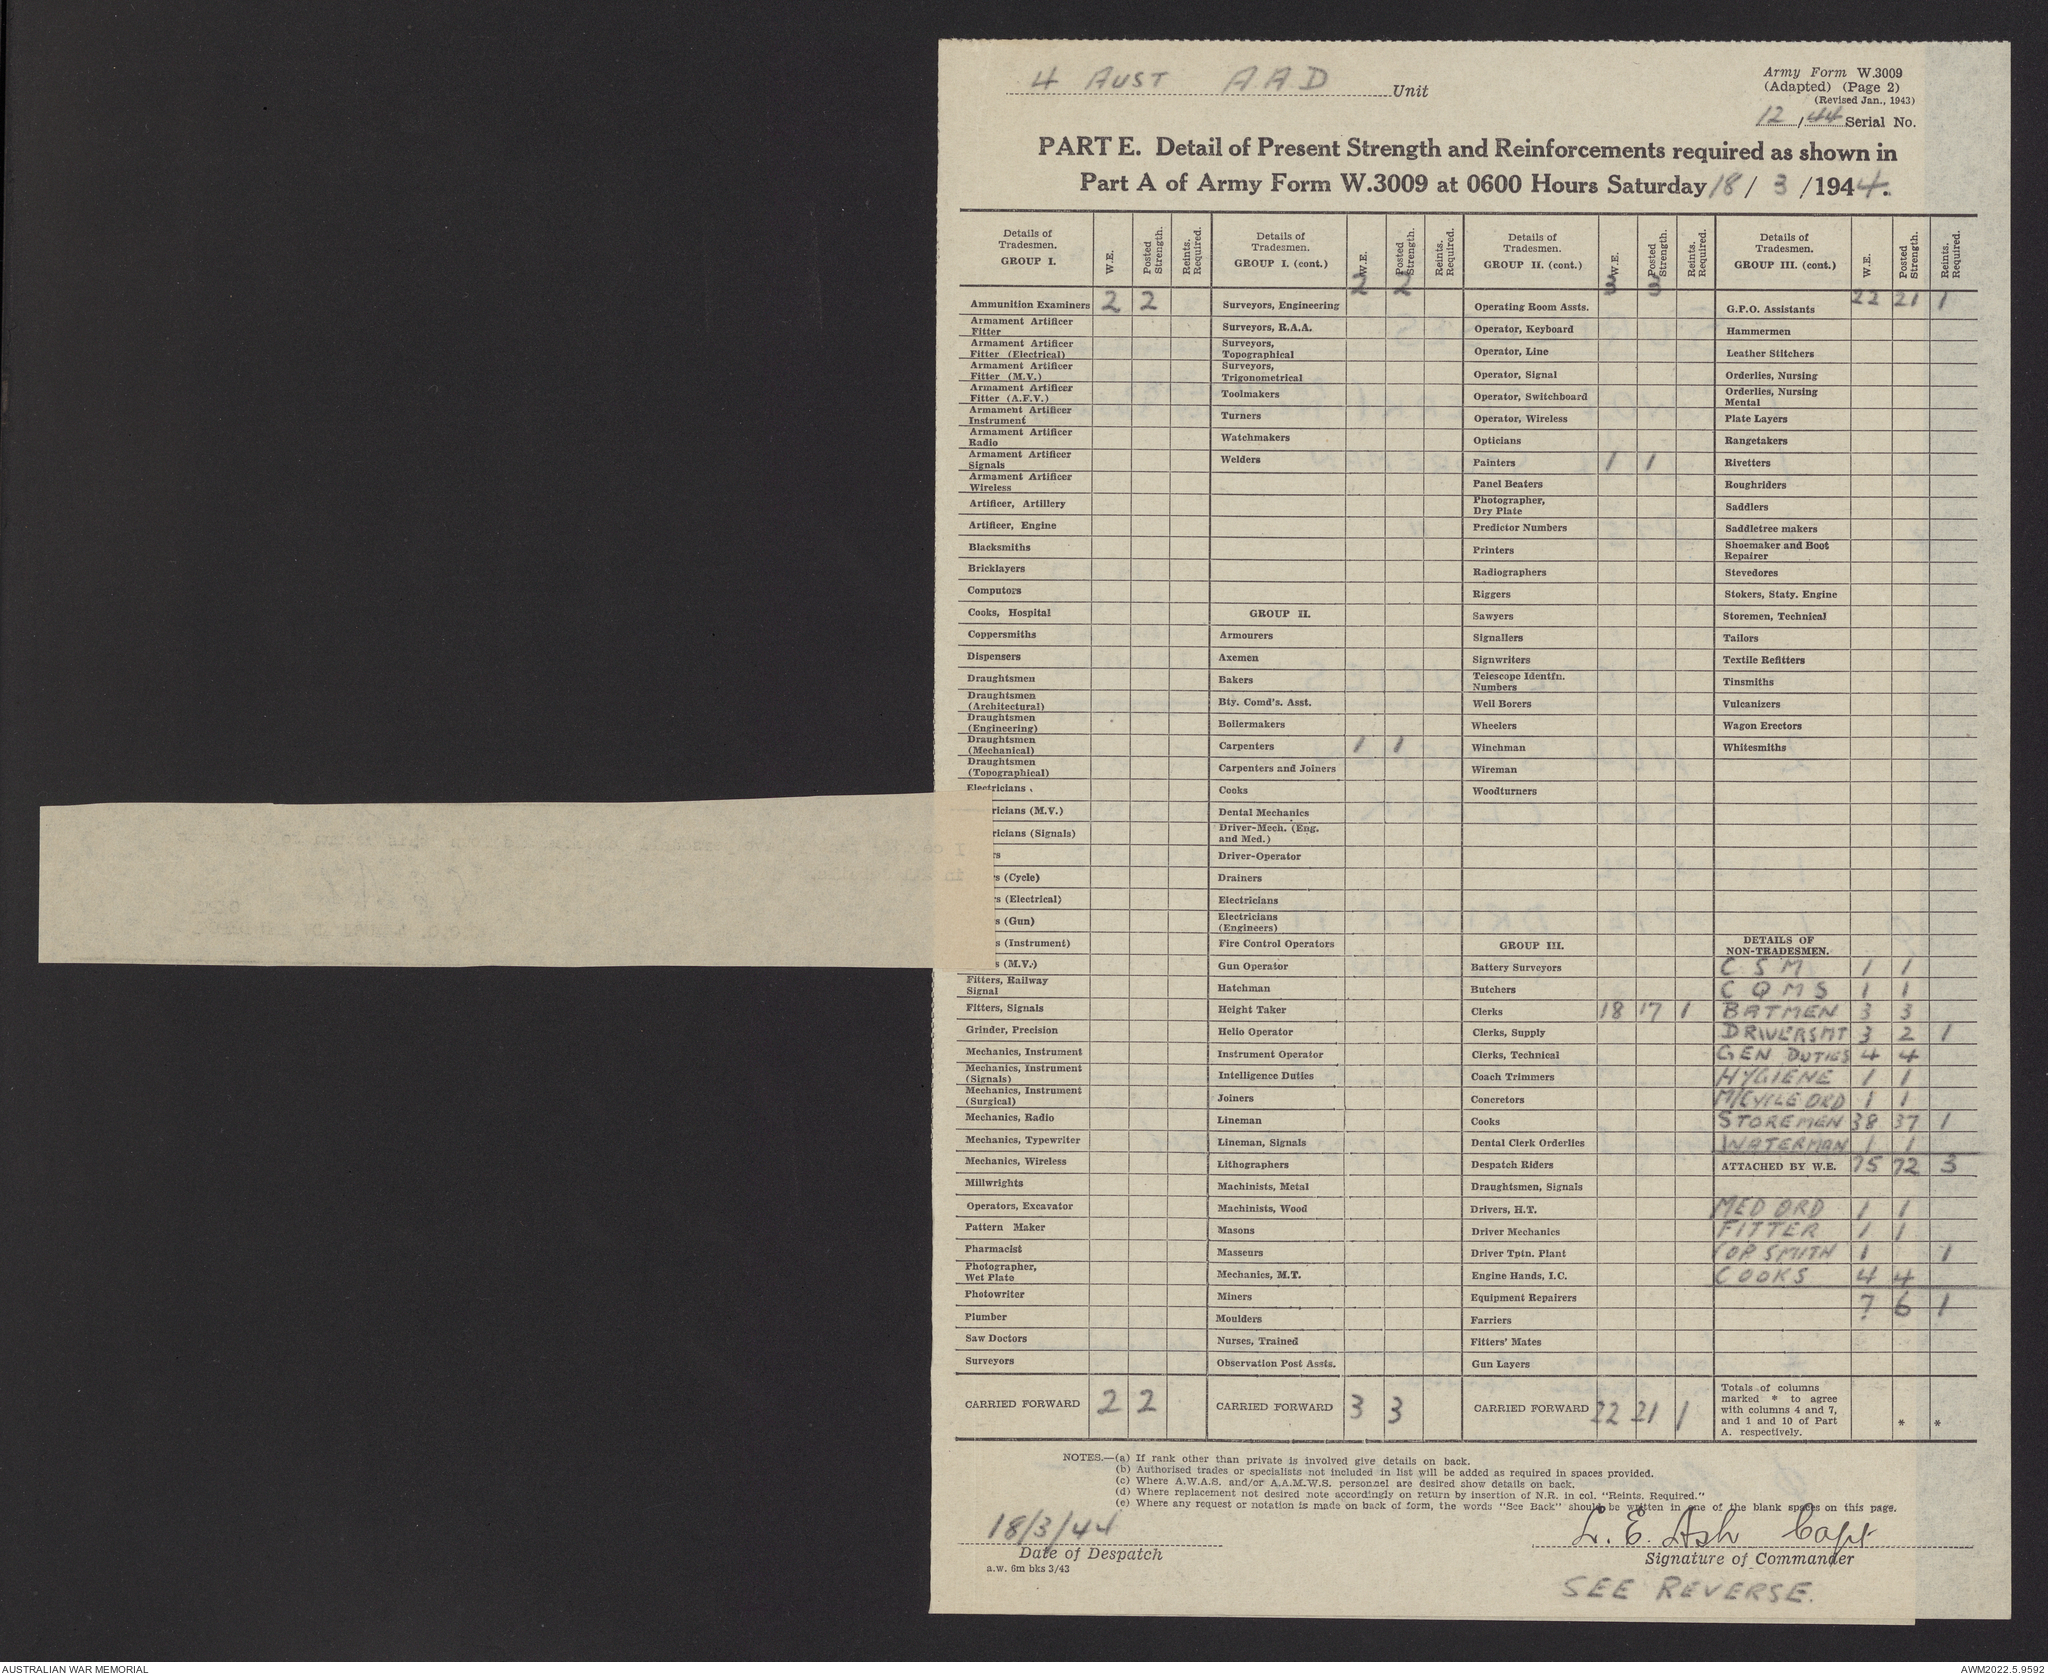 4 AUST AAD Unit
Army Form W.3009
(Adapted) (Page 2)
(Revised Jan., 1943)
12/44 Serial No.
PART E. Detail of Present Strength and Reinforcements required as shown in
Part A of Army Form W.3009 at 0600 Hours Saturday 18/ 3 /1944.
Details of Tradesmen. GROUP I. W.E. Posted Strength. Reints. Required.
Ammunition Examiners 2 2
Armament Artificer Fitter
Armament Artificer Fitter (Electrical)
Armament Artificer Fitter (M.V.)
Armament Artificer Fitter (A.F.V.)
Armament Artificer Instrument
Armament Artificer Radio
Armament Artificer Signals
Armament Artificer Wireless
Artificer, Artillery
Artificer, Engine
Blacksmiths
Bricklayers
Computors
Cooks, Hospital
Coppersmiths
Dispensers
Draughtsmen
Draughtsmen (Architectural)
Draughtsmen (Engineering)
Draughtsmen (Mechanical)
Draughtsmen (Topographical)
Electricians
ricians (M.V.)
ricians (Signals)
rs
s (Cycle)
s (Electrical)
s (Gun)
s (Instrument)
s (M.V.)
Fitters, Railway Signal
Fitters, Signals
Grinder, Precision
Mechanics, Instrument
Mechanics, Instrument (Signals)
Mechanics, Instrument (Surgical)
Mechanics, Radio
Mechanics, Typewriter
Mechanics, Wireless
Millwrights
Operators, Excavator
Pattern Maker
Pharmacist
Photographer, Wet Plate
Photowriter
Plumber
Saw Doctors
Surveyors
CARRIED FORWARD 2 2
Details of Tradesmen. GROUP I. (cont.) W.E. Posted Strength. Reints. Required.
2 2
Surveyors, Engineering
Surveyors, R.A.A.
Surveyors, Topographical
Surveyors, Trigonometrical
Toolmakers
Turners
Watchmakers
Welders
GROUP II.
Armourers
Axemen
Bakers
Bty. Comd's. Asst.
Boilermakers
Carpenters 1 1
Carpenters and Joiners
Cooks
Dental Mechanics
Driver-Mech. (Eng. and Med.)
Driver-Operator
Drainers
Electricians
Electricians (Engineers)
Fire Control Operators
Gun Operator
Hatchman
Height Taker
Helio Operator
Instrument Operator
Intelligence Duties
Joiners
Lineman
Lineman, Signals
Lithographers
Machinists, Metal
Machinists, Wood
Masons
Masseurs
Mechanics, M.T.
Miners
Moulders
Nurses, Trained
Observation Post Assts.
CARRIED FORWARD 3 3
Details of Tradesmen. GROUP II. (cont.) W.E. Posted Strength. Reints. Required.
3 3
Operating Room Assts.
Operator, Keyboard
Operator, Line
Operator, Signal
Operator, Switchboard
Operator, Wireless
Opticians
Painters 1 1
Panel Beaters
Photographer, Dry Plate
Predictor Numbers
Printers
Radiographers
Riggers
Sawyers
Signallers
Signwriters
Telescope Identfn. Numbers
Well Borers
Wheelers
Winchman
Wireman
Woodturners
GROUP III.
Battery Surveyors
Butchers
Clerks 18 17 1
Clerks, Supply
Clerks, Technical
Coach Trimmers
Concretors
Cooks
Dental Clerk Orderlies
Despatch Riders
Draughtsmen, Signals
Drivers, H.T.
Driver Mechanics
Driver Tptn. Plant
Engine Hands, I.C.
Equipment Repairers
Farriers
Fitters' Mates
Gun Layers
CARRIED FORWARD 22 21 1
Details of Tradesmen. GROUP III. (cont.) W.E. Posted Strength. Reints. Required.
G.P.O. Assistants 22 21 1
Hammermen
Leather Stitchers
Orderlies, Nursing
Orderlies, Nursing Mental
Plate Layers
Rangetakers
Rivetters
Roughriders
Saddlers
Saddletree makers
Shoemaker and Boot Repairer
Stevedores
Stokers, Staty. Engine
Storemen, Technical
Tailors
Textile Refitters
Tinsmiths
Vulcanizers
Wagon Erectors
Whitesmiths
DETAILS OF NON-TRADESMEN.
C S M 1 1
C Q M S 1 1
BATMEN 3 3
DRIVERS MT 3 2 1
GEN DUTIES 4 4
HYGIENE 1 1
M/CYCLE ORD 1 1
STOREMEN 38 37 1
WATERMAN 1 1
ATTACHED BY W.E. 75 72 3
MED ORD 1 1
FITTER 1 1
COP SMITH 1 1
COOKS 4 4
7 6 1
Totals of columns marked * to agree with columns 4 and 7, and 1 and 10 of Part A. respectively. * *
NOTES.—(a) If rank other than private is involved give details on back.
(b) Authorised trades or specialists not included in list will be added as required in spaces provided.
(c) Where A.W.A.S. and/or A.A.M.W.S. personnel are desired show details on back.
(d) Where replacement not desired note accordingly on return by insertion of N.R. in col. "Reints. Required."
(e) Where any request or notation is made on back of form, the words "See Back" should be written in one of the blank spaces on this page.
18/3/44
Date of Despatch
a.w. 6m bks 3/43
L. E. Ash Capt
Signature of Commander
SEE REVERSE.
AUSTRALIAN WAR MEMORIAL
AWM2022.5.9592